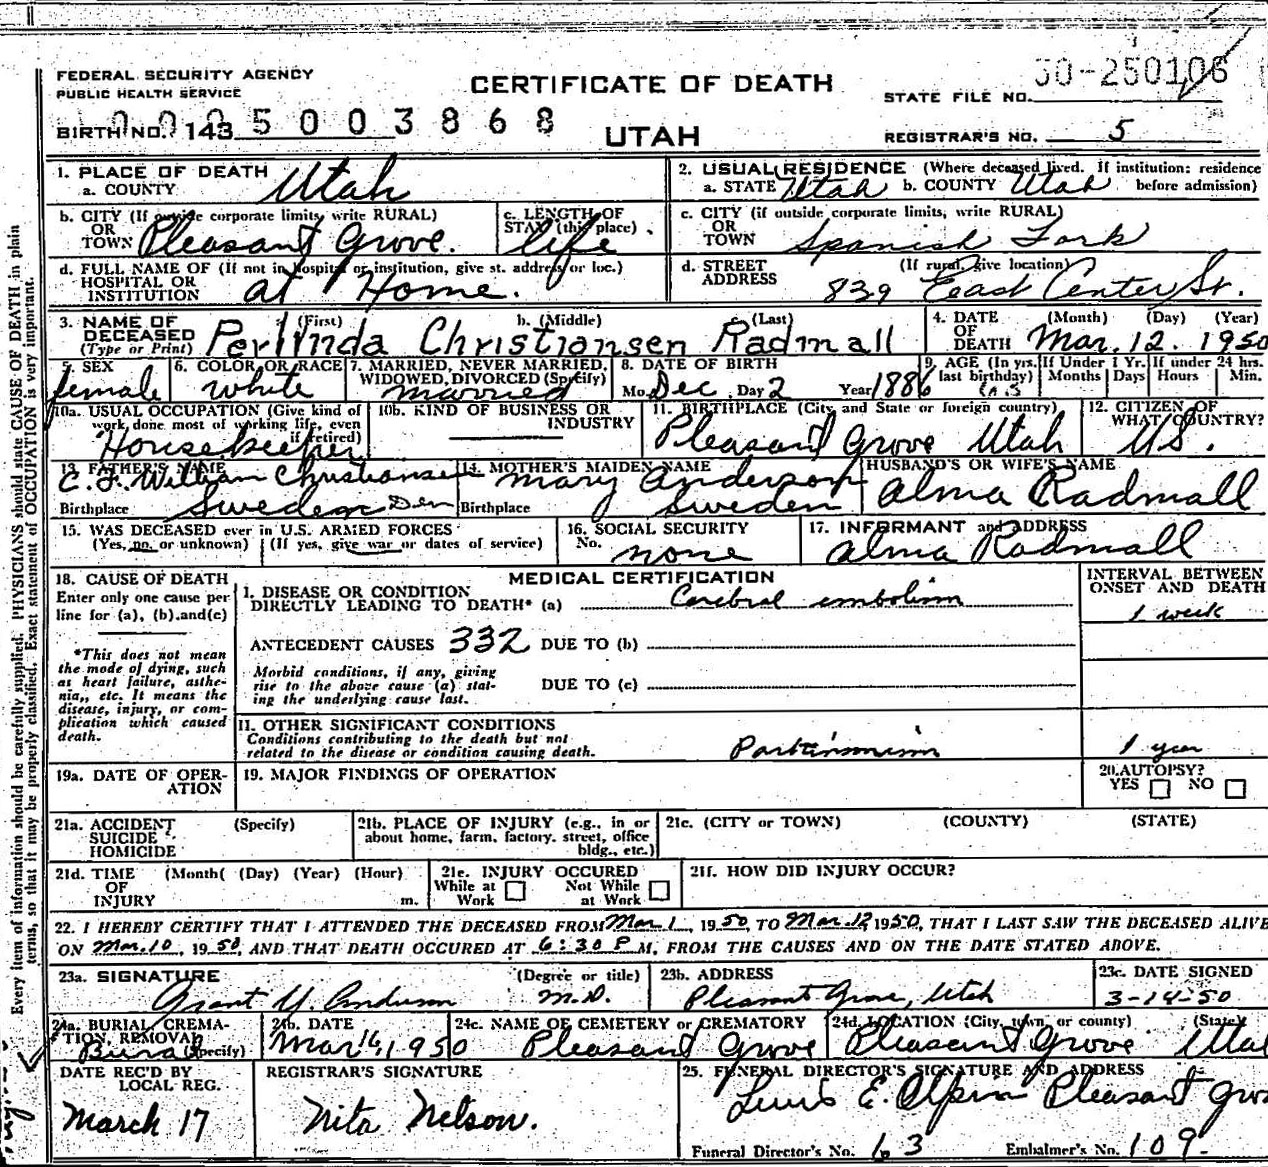 FEDERAL SECURITY AGENCY
PUBLIC HEALTH SERVICE
CERTIFICATE OF DEATH
STATE FILE NO. 50-250106
BIRTH NO. 143 0005003868
UTAH
REGISTRAR'S NO. 5
1. PLACE OF DEATH
a. COUNTY Utah
2. USUAL RESIDENCE (Where deceased lived. If institution: residence
a. STATE Utah b. COUNTY Utah before admission)
b. CITY (If outside corporate limits, write RURAL)
OR
TOWN Pleasant Grove.
c. LENGTH OF
STAY (this place)
life
c. CITY (if outside corporate limits, write RURAL)
OR
TOWN Spanish Fork
d. FULL NAME OF (If not in hospital or institution, give st. address or loc.)
HOSPITAL OR
INSTITUTION at Home.
d. STREET (If rural, give location)
ADDRESS 839 East Center St.
3. NAME OF (First) b. (Middle) c. (Last)
DECEASED
(Type or Print) Perlinda Christiansen Radmall
4. DATE (Month) (Day) (Year)
OF
DEATH Mar. 12. 1950
5. SEX
female
6. COLOR OR RACE
white
7. MARRIED, NEVER MARRIED,
WIDOWED, DIVORCED (Specify)
married
8. DATE OF BIRTH
Mo. Dec Day 2 Year 1886
9. AGE (In yrs. last birthday) 63
If Under 1 Yr. Months Days
If under 24 hrs. Hours Min.
10a. USUAL OCCUPATION (Give kind of
work done most of working life, even
if retired)
Housekeeper
10b. KIND OF BUSINESS OR
INDUSTRY
11. BIRTHPLACE (City and State or foreign country)
Pleasant Grove Utah
12. CITIZEN OF
WHAT COUNTRY?
U.S.
13. FATHER'S NAME
C. F. William Christiansen
Birthplace Sweden Den
14. MOTHER'S MAIDEN NAME
Mary Anderson
Birthplace Sweden
HUSBAND'S OR WIFE'S NAME
Alma Radmall
15. WAS DECEASED ever in U.S. ARMED FORCES
(Yes, no, or unknown) (If yes, give war or dates of service)
16. SOCIAL SECURITY
No. none
17. INFORMANT and ADDRESS
Alma Radmall
18. CAUSE OF DEATH
Enter only one cause per
line for (a), (b), and (c)
*This does not mean
the mode of dying, such
as heart failure, asthe-
nia, etc. It means the
disease, injury, or com-
plication which caused
death.
MEDICAL CERTIFICATION
INTERVAL BETWEEN
ONSET AND DEATH
I. DISEASE OR CONDITION
DIRECTLY LEADING TO DEATH* (a) Cerebral embolism 1 week
ANTECEDENT CAUSES 332 DUE TO (b)
Morbid conditions, if any, giving
rise to the above cause (a) stat-
ing the underlying cause last.
DUE TO (c)
II. OTHER SIGNIFICANT CONDITIONS
Conditions contributing to the death but not
related to the disease or condition causing death.
Parkinsonism 1 year
19a. DATE OF OPER-
ATION
19. MAJOR FINDINGS OF OPERATION
20. AUTOPSY?
YES NO
21a. ACCIDENT (Specify)
SUICIDE
HOMICIDE
21b. PLACE OF INJURY (e.g., in or
about home, farm, factory, street, office
bldg., etc.)
21c. (CITY or TOWN) (COUNTY) (STATE)
21d. TIME (Month( (Day) (Year) (Hour)
OF
INJURY m.
21e. INJURY OCCURED
While at Work Not While at Work
21f. HOW DID INJURY OCCUR?
22. I HEREBY CERTIFY THAT I ATTENDED THE DECEASED FROM Mar 1, 1950, TO Mar. 12 1950, THAT I LAST SAW THE DECEASED ALIVE
ON Mar. 10, 1950, AND THAT DEATH OCCURED AT 6:30 P M, FROM THE CAUSES AND ON THE DATE STATED ABOVE.
23a. SIGNATURE (Degree or title)
Grant Y. Anderson M.D.
23b. ADDRESS
Pleasant Grove, Utah
23c. DATE SIGNED
3-14-50
24a. BURIAL, CREMA-
TION, REMOVAL
(Specify) Burial
24b. DATE
Mar 16, 1950
24c. NAME OF CEMETERY or CREMATORY
Pleasant Grove
24d. LOCATION (City, town, or county) (State)
Pleasant Grove Utah
DATE REC'D BY
LOCAL REG.
March 17
REGISTRAR'S SIGNATURE
Nita Nelson.
25. FUNERAL DIRECTOR'S SIGNATURE AND ADDRESS
E. Olpin Pleasant Gro
Funeral Director's No. 63 Embalmer's No. 109
Every item of information should be carefully supplied. PHYSICIANS should state CAUSE OF DEATH in plain
terms, so that it may be properly classified. Exact statement of OCCUPATION is very important.